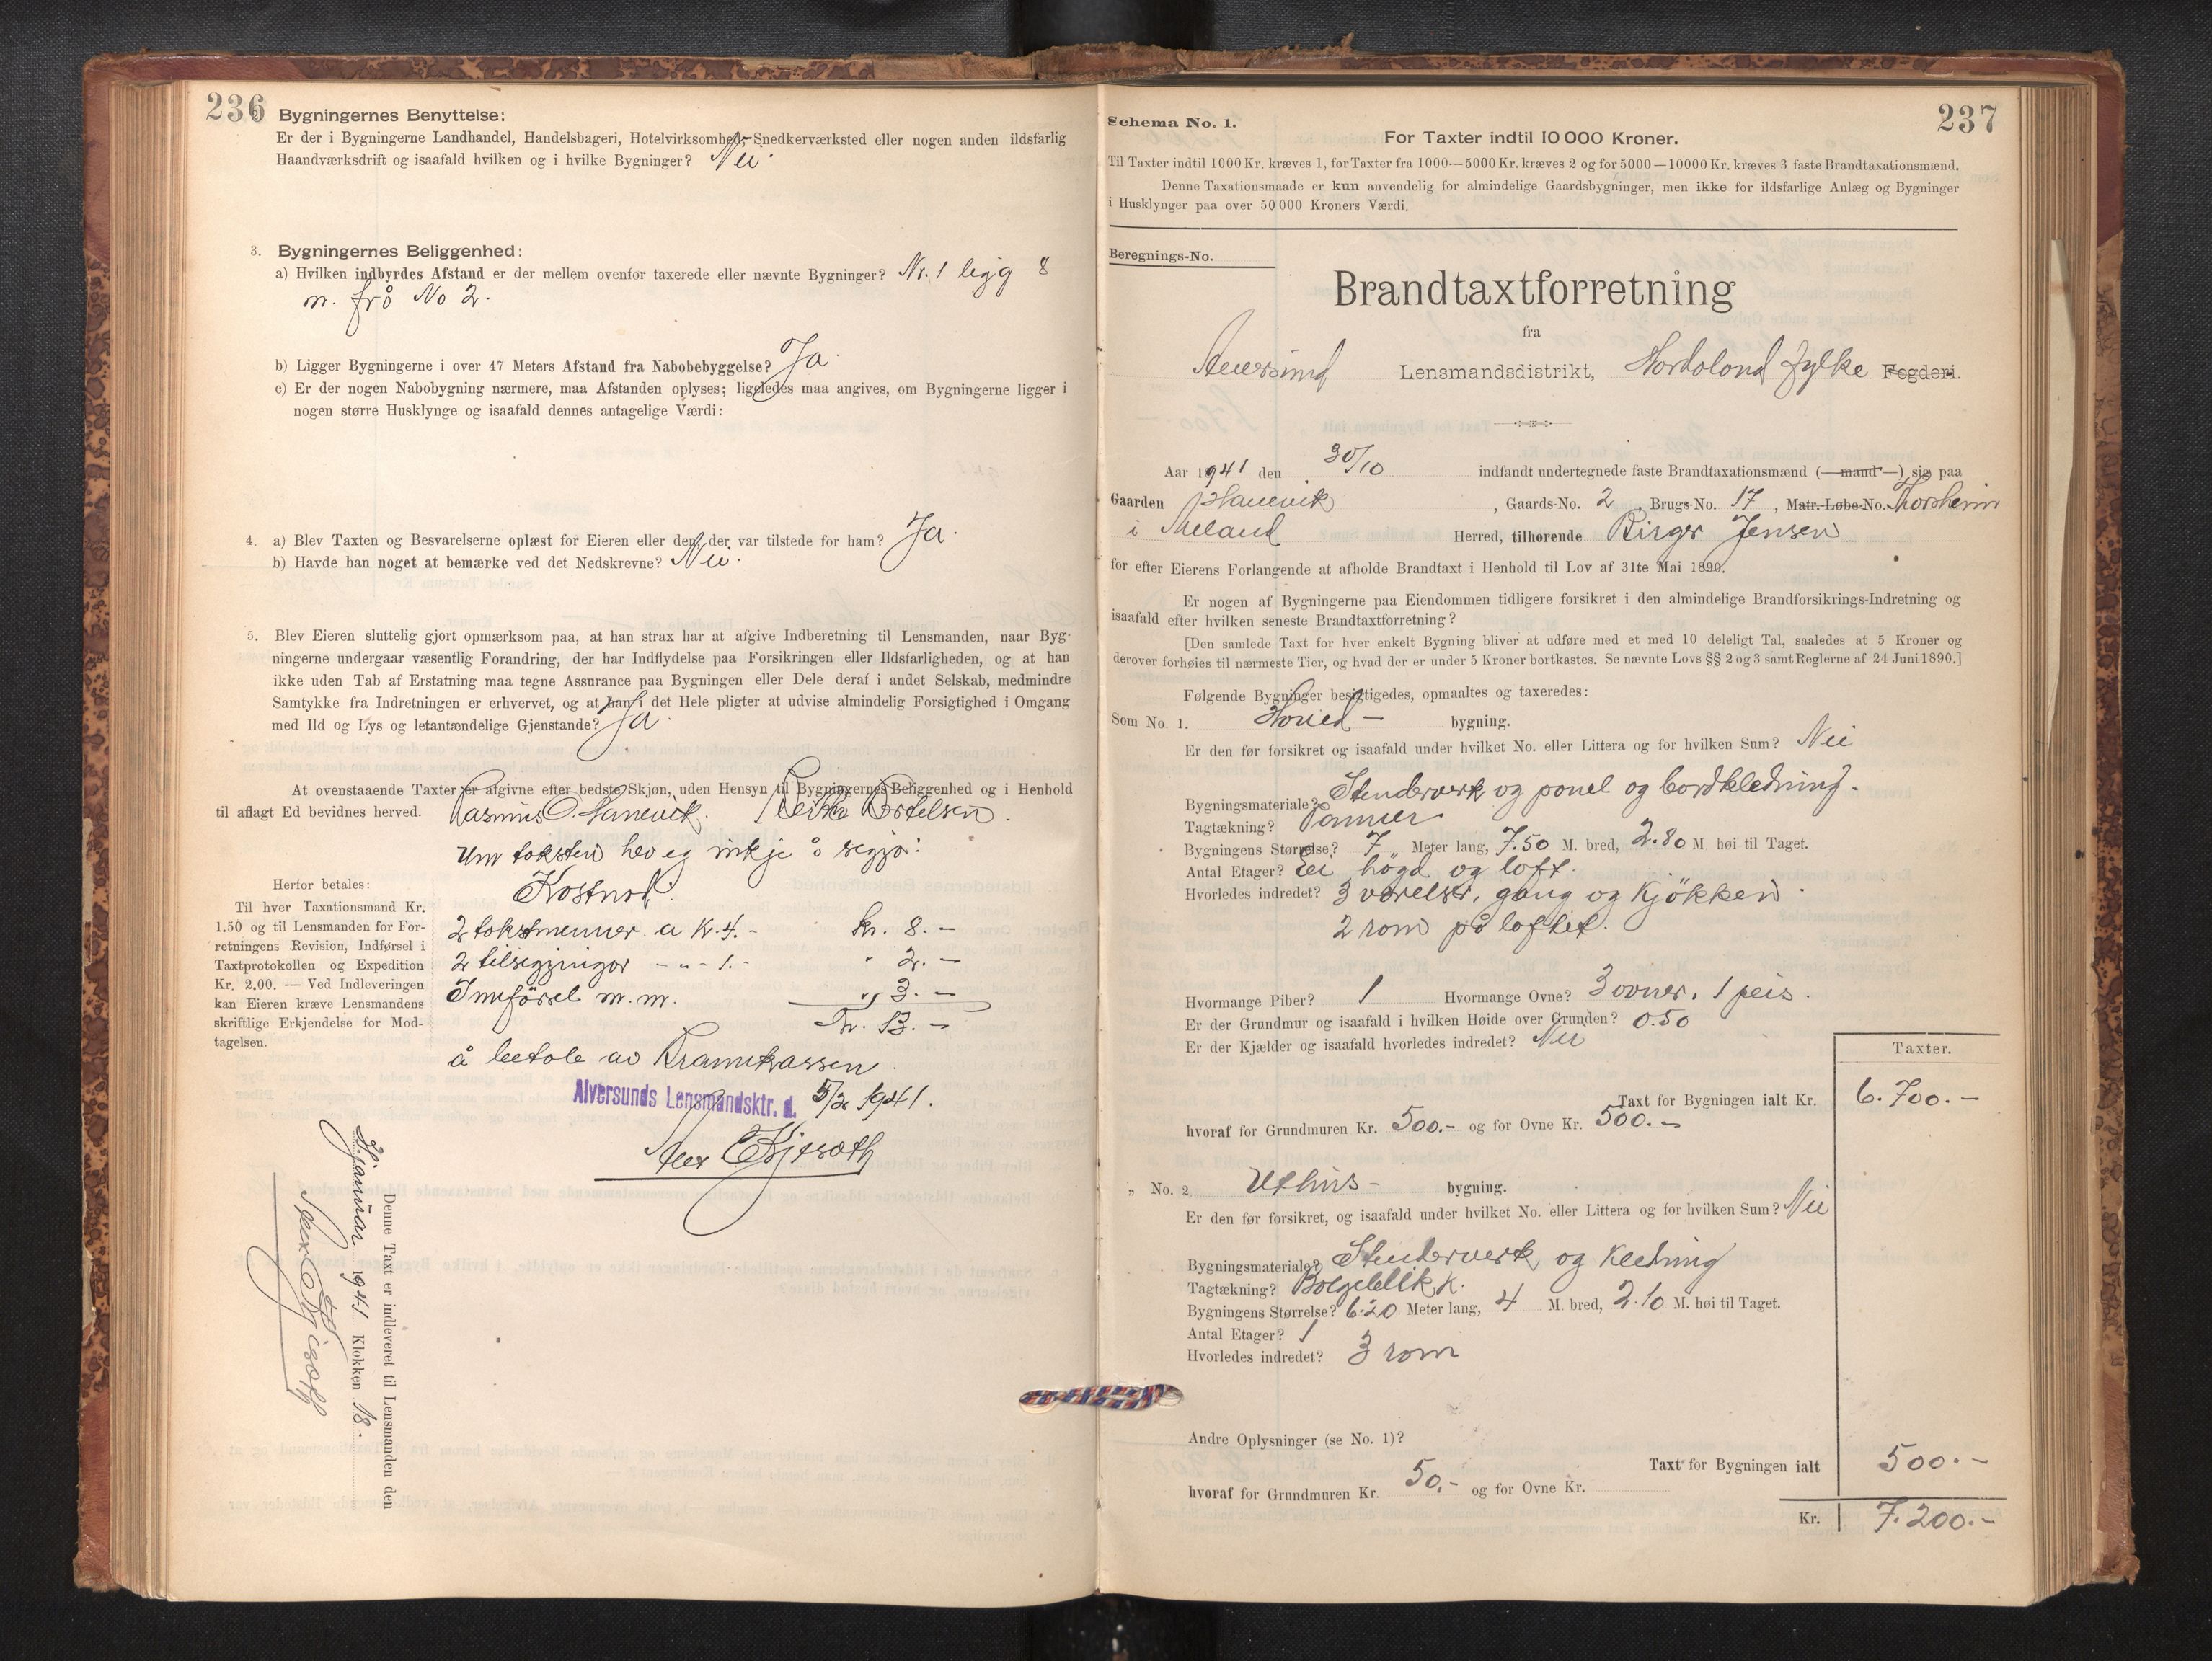 236
Bygningernes Benyttelse:
Er der i Bygningerne Landhandel, Handelsbageri, Hotelvirksomhed, Snedkerværksted eller nogen anden ildsfarlig
Haandværksdrift og isaafald hvilken og i hvilke Bygninger? Nei.
3. Bygningernes Beliggenhed:
a) Hvilken indbyrdes Afstand er der mellem ovenfor taxerede eller nævnte Bygninger? Nr. 1 ligg 8
m. frå No 2.
b) Ligger Bygningerne i over 47 Meters Afstand fra Nabobebyggelse? Ja.
c) Er der nogen Nabobygning nærmere, maa Afstanden oplyses; ligeledes maa angives, om Bygningerne ligger i
nogen større Husklynge og isaafald dennes antagelige Værdi:
4. a) Blev Taxten og Besvarelserne oplæst for Eieren eller den, der var tilstede for ham? Ja.
b) Havde han noget at bemærke ved det Nedskrevne? Nei.
5. Blev Eieren sluttelig gjort opmærksom paa, at han strax har at afgive Indberetning til Lensmanden, naar Byg-
ningerne undergaar væsentlig Forandring, der har Indflydelse paa Forsikringen eller Ildsfarligheden, og at han
ikke uden Tab af Erstatning maa tegne Assurance paa Bygningen eller Dele deraf i andet Selskab, medmindre
Samtykke fra Indretningen er erhvervet, og at han i det Hele pligter at udvise almindelig Forsigtighed i Omgang
med Ild og Lys og letantændelige Gjenstande? Ja.
At ovenstaaende Taxter er afgivne efter bedste Skjøn, uden Hensyn til Bygningernes Beliggenhed og i Henhold
til aflagt Ed bevidnes herved. Rasmus O. Hanevik. Bertelsen.
Um taksten hev eg inkje å segja.
Herfor betales:
Til hver Taxationsmand Kr.
1.50 og til Lensmanden for For-
retningens Revision, Indførsel i
Taxtprotokollen og Expedition
Kr. 2.00. — Ved Indleveringen
kan Eieren kræve Lensmandens
skriftlige Erkjendelse for Mod-
tagelsen.
Kostnad.
2 takstmenner a K. 4.- kr. 8.-
2 tilsegjingar - " - 1.- " 2.-
Innførsel m.m. " 3.-
Kr. 13.-
å betale av Brannkassen.
Alversunds Lensmandsktr. d. 1941.
Denne Taxt er indleveret til Lensmanden den
januar 1941 Klokken 18.
237
Schema No. 1.
For Taxter indtil 10 000 Kroner.
Til Taxter indtil 1000 Kr. kræves 1, for Taxter fra 1000—5000 Kr. kræves 2 og for 5000—10000 Kr. kræves 3 faste Brandtaxationsmænd.
Denne Taxationsmaade er kun anvendelig for almindelige Gaardsbygninger, men ikke for ildsfarlige Anlæg og Bygninger
i Husklynger paa over 50 000 Kroners Værdi.
Beregnings-No.
Brandtaxtforretning
fra
Alversund Lensmandsdistrikt, Hordaland fylke Fogderi.
Aar 1941 den 30/10 indfandt undertegnede faste Brandtaxationsmænd (—mand—) sig paa
Gaarden Hanevik, Gaards-No. 2, Brugs-No. 17, Matr.-Løbe-No. Thorsheim
i Meland Herred, tilhørende Birger Jensen
for efter Eierens Forlangende at afholde Brandtaxt i Henhold til Lov af 31te Mai 1890.
Er nogen af Bygningerne paa Eiendommen tidligere forsikret i den almindelige Brandforsikrings-Indretning og
isaafald efter hvilken seneste Brandtaxtforretning?
[Den samlede Taxt for hver enkelt Bygning bliver at udføre med et med 10 deleligt Tal, saaledes at 5 Kroner og
derover forhøies til nærmeste Tier, og hvad der er under 5 Kroner bortkastes. Se nævnte Lovs §§ 2 og 3 samt Reglerne af 24 Juni 1890.]
Følgende Bygninger besigtigedes, opmaaltes og taxeredes:
Som No. 1. Hoved- bygning.
Er den før forsikret og isaafald under hvilket No. eller Littera og for hvilken Sum? Nei
Bygningsmateriale? Stenderverk og panel og bordkledning.
Tagtækning? Panner
Bygningens Størrelse? 7 Meter lang, 7.50 M. bred, 2.80 M. høi til Taget.
Antal Etager? Ei høgd og loft.
Hvorledes indredet? 3 værelser, gang og kjøkken.
2 rom på loftet.
Hvormange Piber? 1 Hvormange Ovne? 3 ovner, 1 peis.
Er der Grundmur og isaafald i hvilken Høide over Grunden? 0.50
Er der Kjælder og isaafald hvorledes indredet? Nei
Taxter.
Taxt for Bygningen ialt Kr. 6.700.-
hvoraf for Grundmuren Kr. 500.- og for Ovne Kr. 500.-
" No. 2 Uthus- bygning.
Er den før forsikret, og isaafald under hvilket No. eller Littera og for hvilken Sum? Nei
Bygningsmateriale? Stenderverk og kledning
Tagtækning? Bølgeblikk.
Bygningens Størrelse? 6.20 Meter lang, 4 M. bred, 2.10 M. høi til Taget.
Antal Etager? 1
Hvorledes indredet? 3 rom
Andre Oplysninger (se No. 1)?
Taxt for Bygningen ialt 500.-
hvoraf for Grundmuren Kr. 50.- og for Ovne Kr.
Kr. 7.200.-